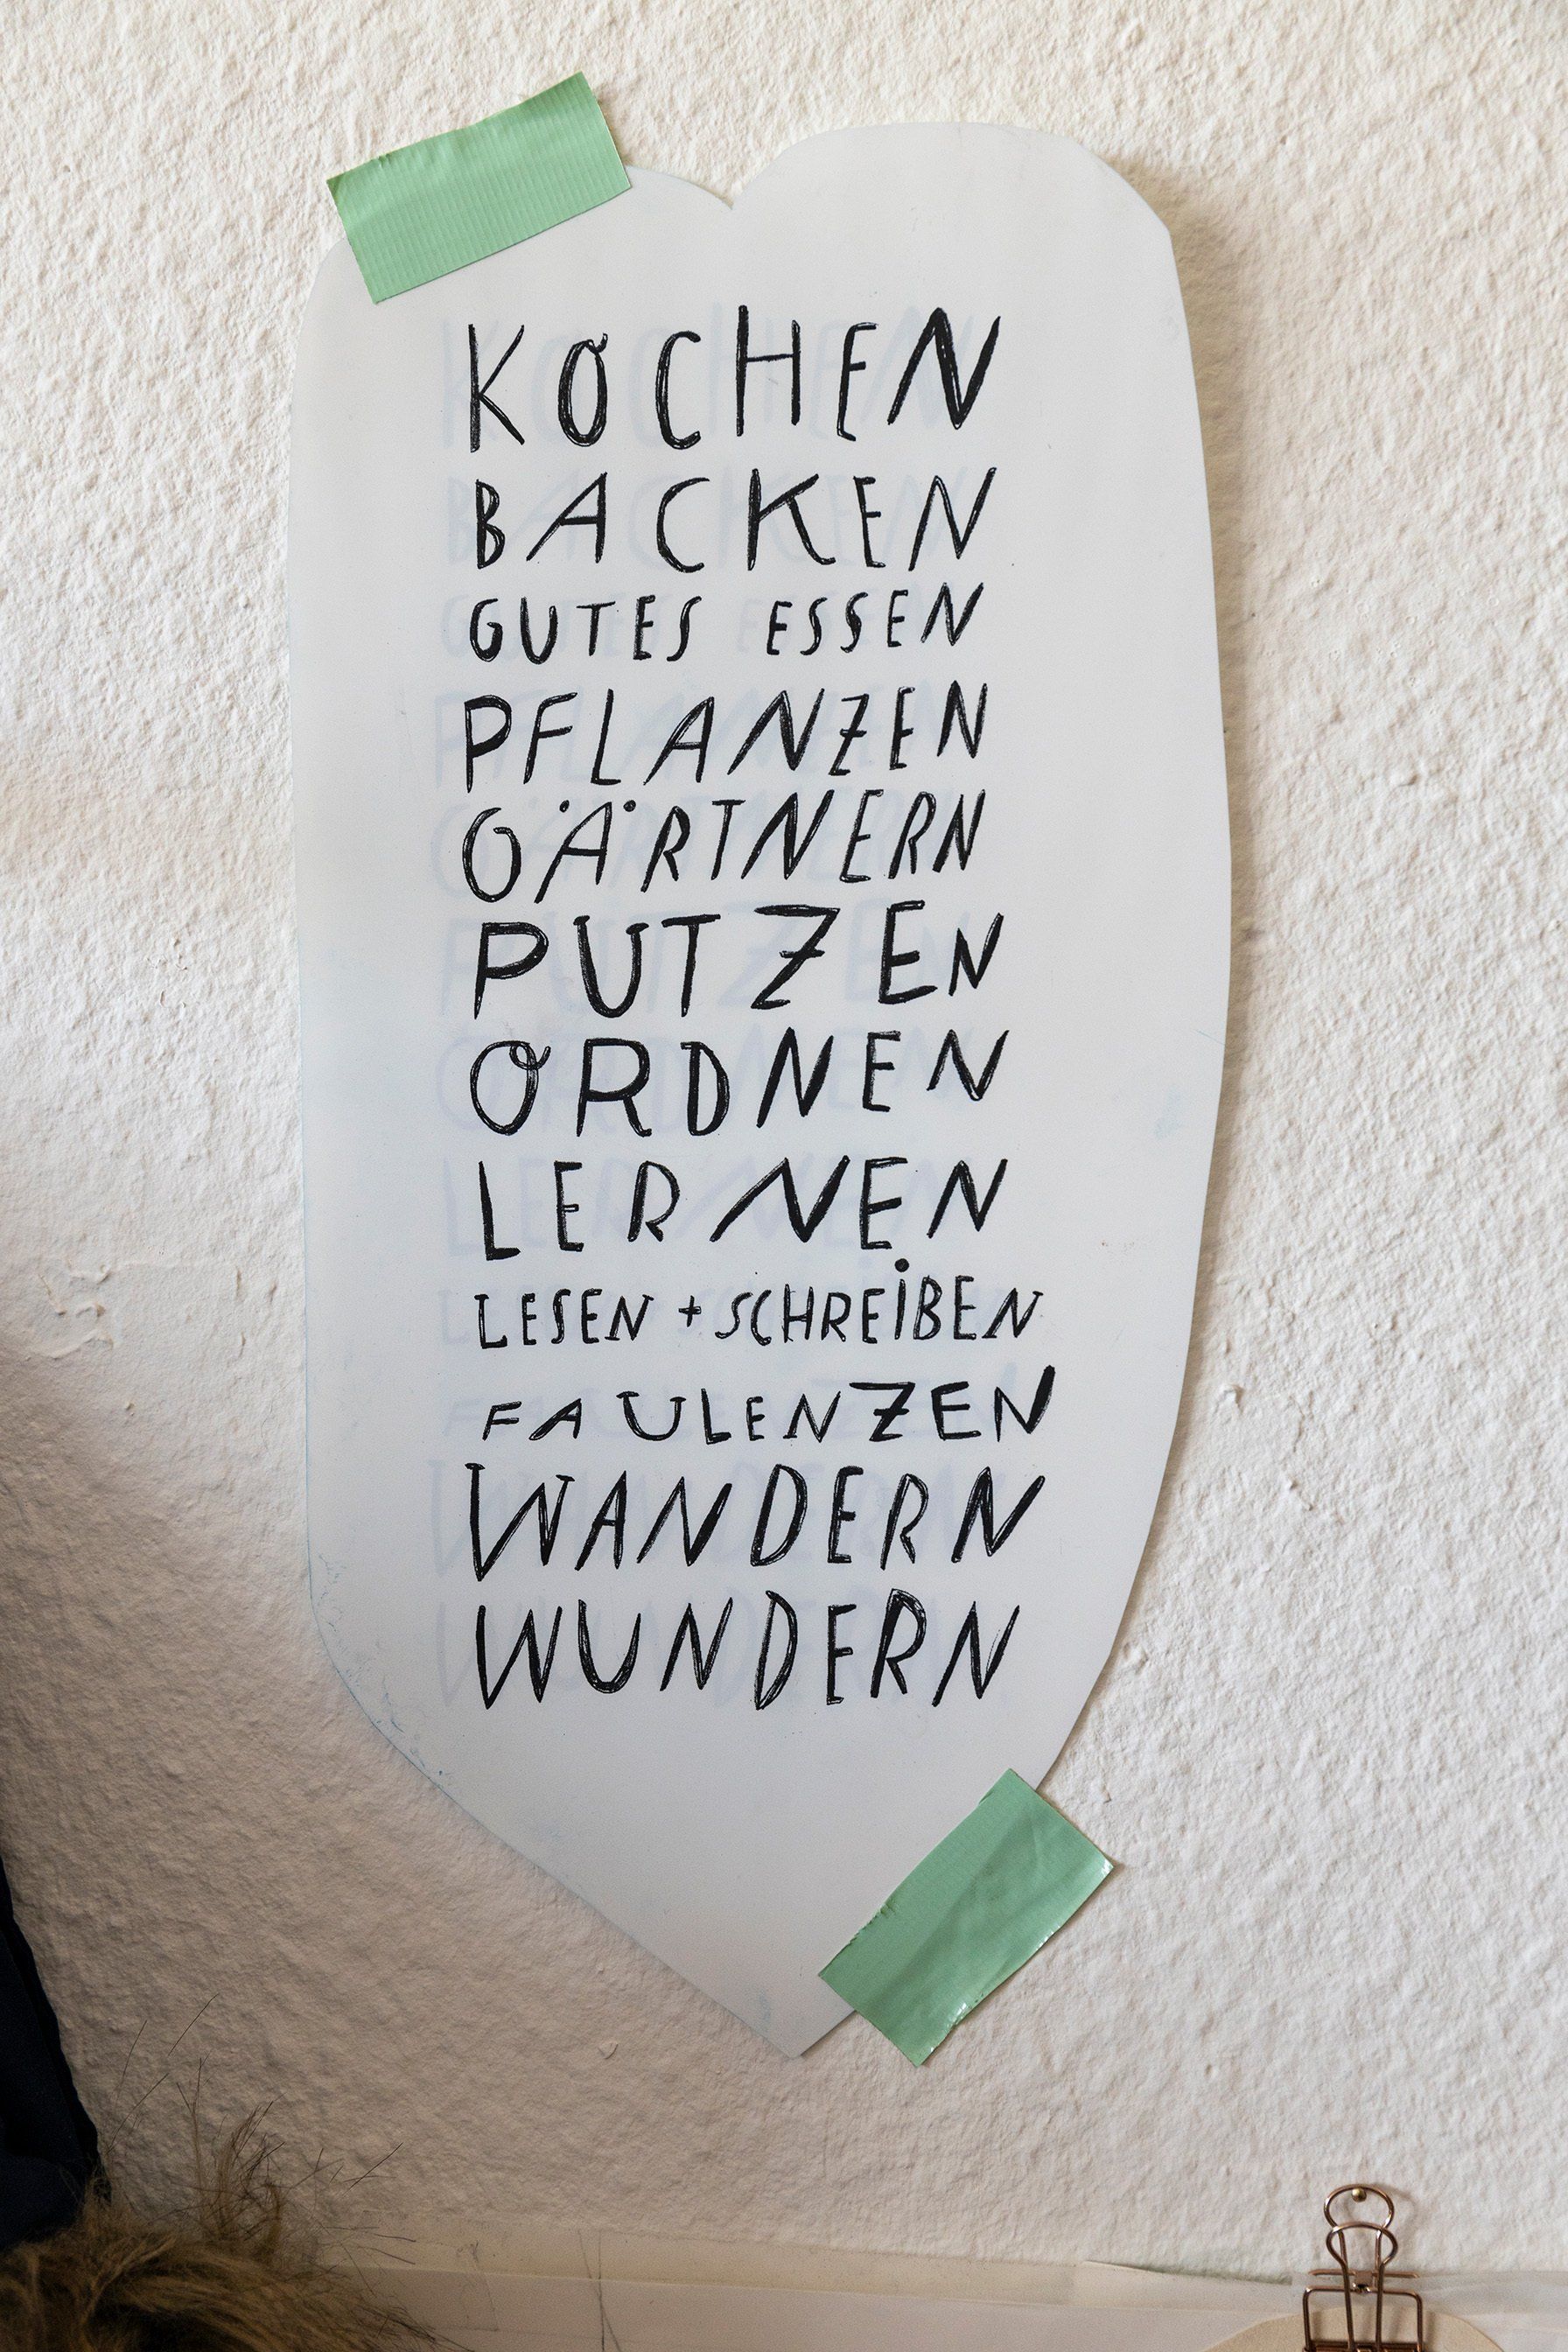 KOCHEN
BACKEN
GUTES ESSEN
PFLANZEN
GÄRTNERN
PUTZEN
ORDNEN
LERNEN
LESEN + SCHREIBEN
FAULENZEN
WANDERN
WUNDERN